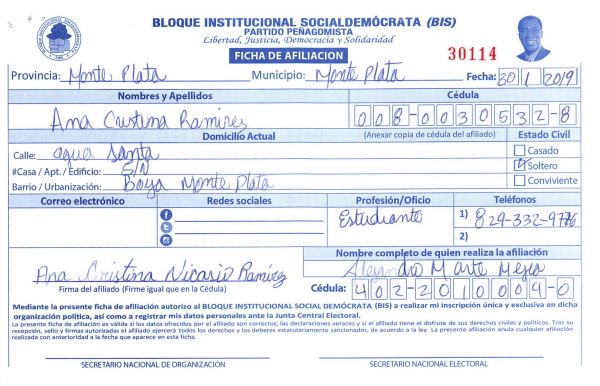 BLOQUE INSTITUCIONAL SOCIALDEMÓCRATA (BIS)
PARTIDO PEÑAGOMISTA
Libertad, Justicia, Democracia y Solidaridad
FICHA DE AFILIACION
30114
Provincia: Monte Plata Municipio: Monte Plata Fecha: 30/1/2019
Nombres y Apellidos Cédula
Ana Cristina Ramirez 008-0030532-8
Domicilio Actual (Anexar copia de cédula del afiliado) Estado Civil
Calle: agua Santa Casado
#Casa / Apt. / Edificio: S/N Soltero
Barrio / Urbanización: Boya Monte Plata Conviviente
Correo electrónico Redes sociales Profesión/Oficio Teléfonos
Estudiante 1) 829-332-9776
2)
Nombre completo de quien realiza la afiliación
Ana Cristina Nicasio Ramírez Alejandro Marte Mejia
Firma del afiliado (Firme igual que en la Cédula) Cédula: 402-2010004-0
Mediante la presente ficha de afiliación autorizo al BLOQUE INSTITUCIONAL SOCIAL DEMÓCRATA (BIS) a realizar mi inscripción única y exclusiva en dicha
organización política, así como a registrar mis datos personales ante la Junta Central Electoral.
La presente ficha de afiliación es válida si los datos ofrecidos por el afiliado son correctos, las declaraciones veraces y si el afiliado tiene el disfrute de sus derechos civiles y políticos. Tras su
recepción, sello y firmas autorizadas el afiliado ejercerá todos los derechos y los deberes estatutariamente sancionados, de acuerdo a la ley. La presente afiliación anula cualquier afiliación
realizada con anterioridad a la fecha que aparece en esta ficha.
SECRETARIO NACIONAL DE ORGANIZACIÓN SECRETARIO NACIONAL ELECTORAL